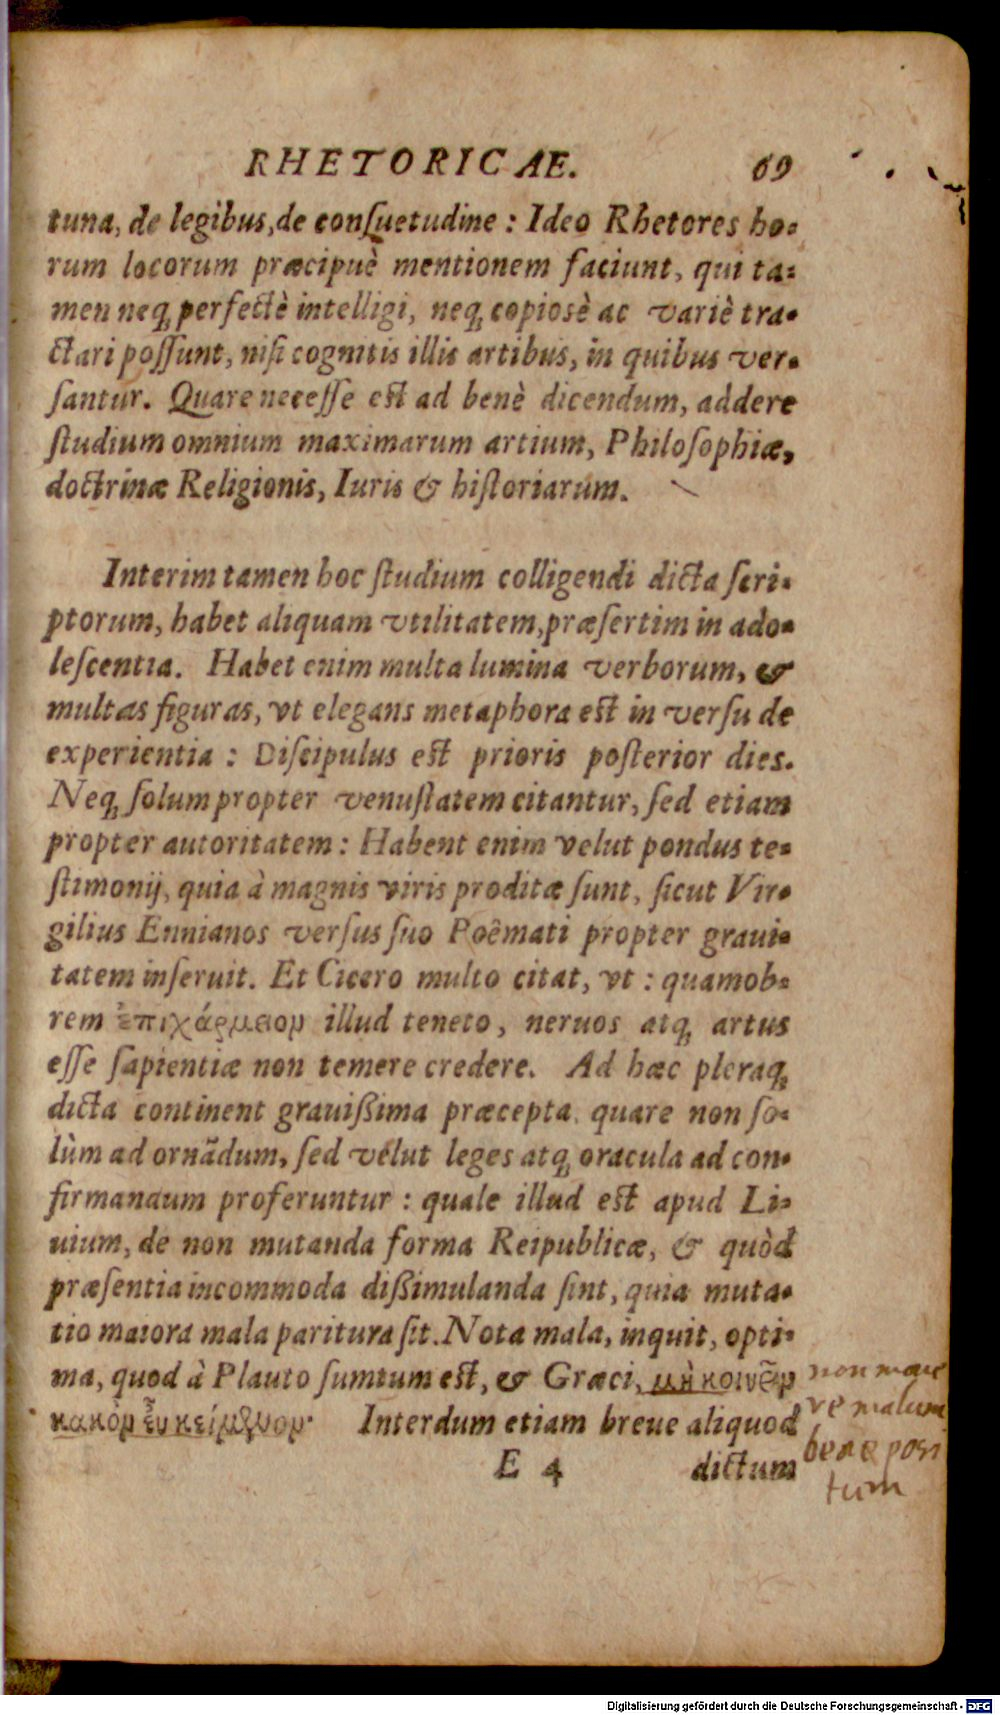 RHETORICAE. 69
tuna, de legibus, de conſuetudine : Ideo Rhetores ho-
rum locorum præcipuè mentionem faciunt, qui ta-
men neq; perfectè intelligi, neq; copiosè ac variè tra-
ctari poſſunt, niſi cognitis illis artibus, in quibus ver-
ſantur. Quare neceſſe est ad benè dicendum, addere
ſtudium omnium maximarum artium, Philoſophiæ,
doctrinæ Religionis, Iuris & hiſtoriarum.
Interim tamen hoc ſtudium colligendi dicta ſcri-
ptorum, habet aliquam vtilitatem, præſertim in ado-
leſcentia. Habet enim multa lumina verborum, &
multas figuras, vt elegans metaphora est in verſu de
experientia : Diſcipulus est prioris poſterior dies.
Neq; ſolum propter venuſtatem citantur, ſed etiam
propter autoritatem : Habent enim velut pondus te-
ſtimonij, quia à magnis viris proditæ ſunt, ſicut Vir-
gilius Ennianos verſus ſuo Poêmati propter graui-
tatem inſeruit. Et Cicero multo citat, vt : quamob-
rem ἐπιχάρμειον illud teneto, neruos atq; artus
eſſe ſapientiæ non temere credere. Ad hæc pleraq;
dicta continent grauißima præcepta. quare non ſo-
lùm ad ornãdum, ſed velut leges atq; oracula ad con-
firmandum proferuntur : quale illud est apud Li-
uium, de non mutanda forma Reipublicæ, & quòd
præſentia incommoda dißimulanda ſint, quia muta-
tio maiora mala paritura ſit. Nota mala, inquit, opti-
ma, quod à Plauto ſumtum est, & Græci, μὴ κοινεῖν
κακὸν εὖ κείμενον. Interdum etiam breue aliquod
E 4 dictum
non moue
re malum
bene posi
tum
Digitalisierung gefördert durch die Deutsche Forschungsgemeinschaft - DFG